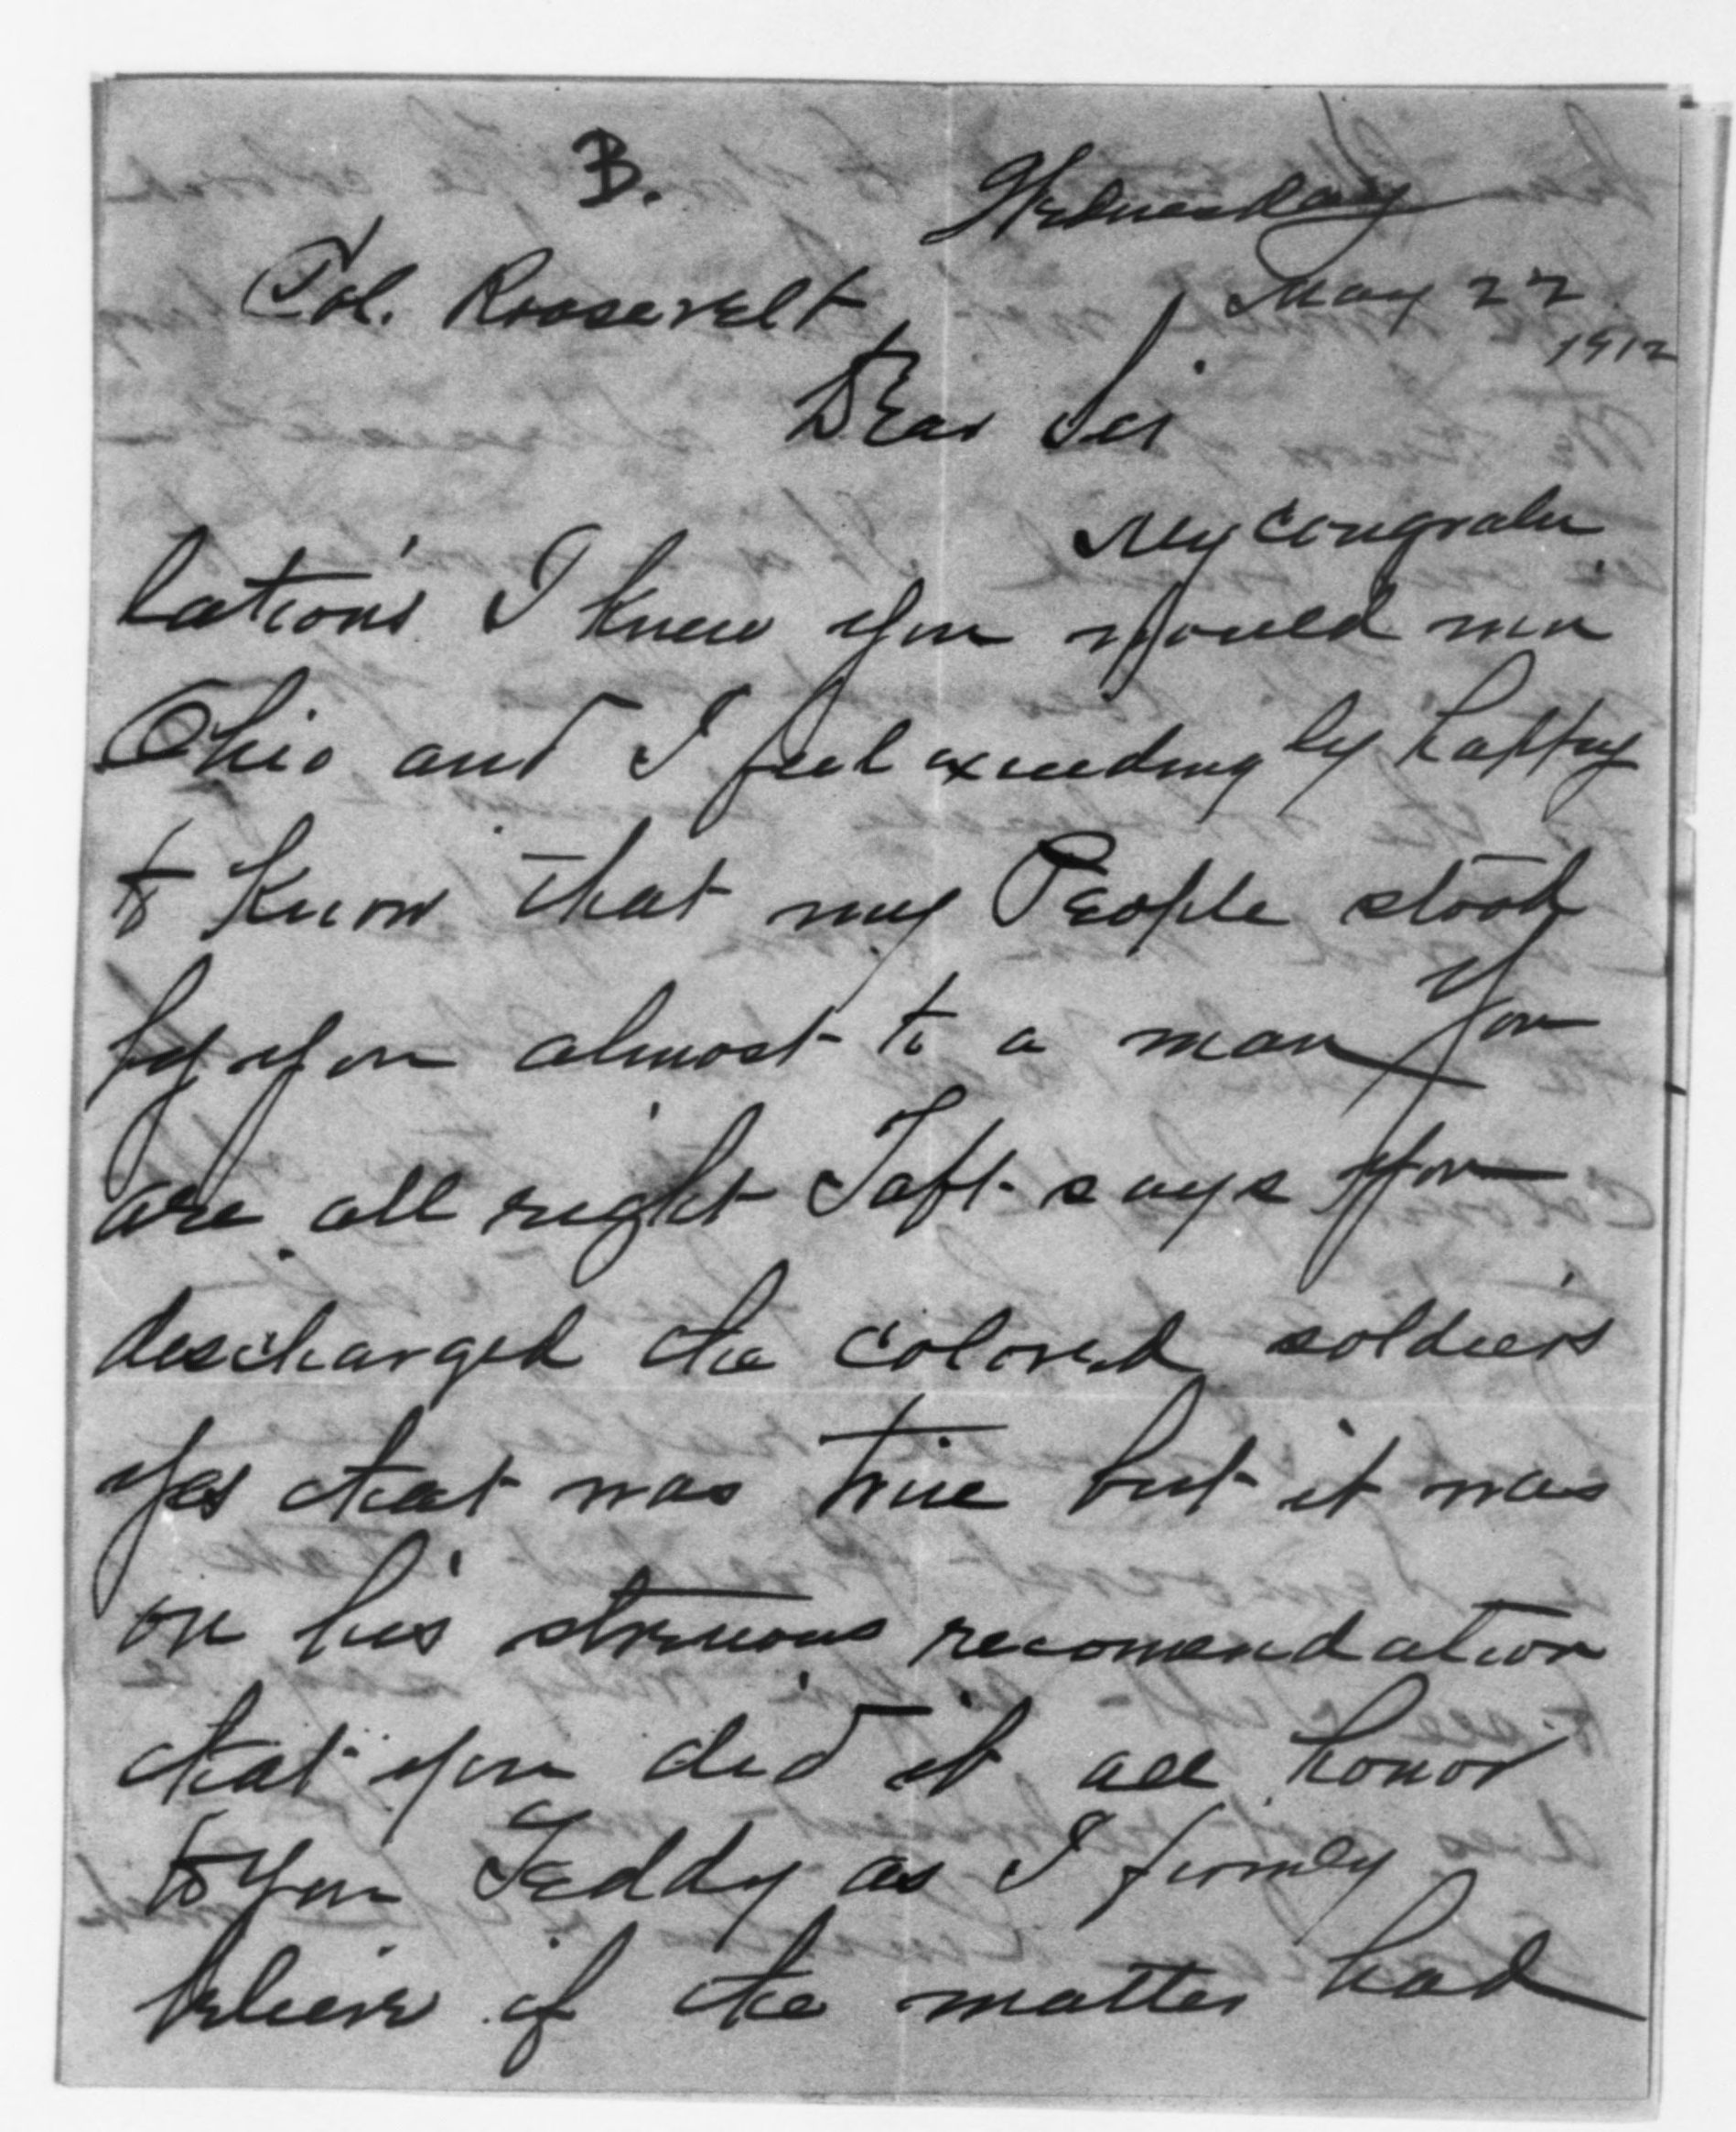 B.
Wednesday
Col. Roosevelt
May 22
1912
Dear Sir
My congratu
lations I knew you would win
Ohio and I feel exceedingly happy
to know that my People stood
by you almost to a man you
are all right Taft says you
discharged the colored soldiers
yes that was true but it was
on his strenuous recomendation
that you did it all honor
to you Teddy as I firmly
believe if the matter had